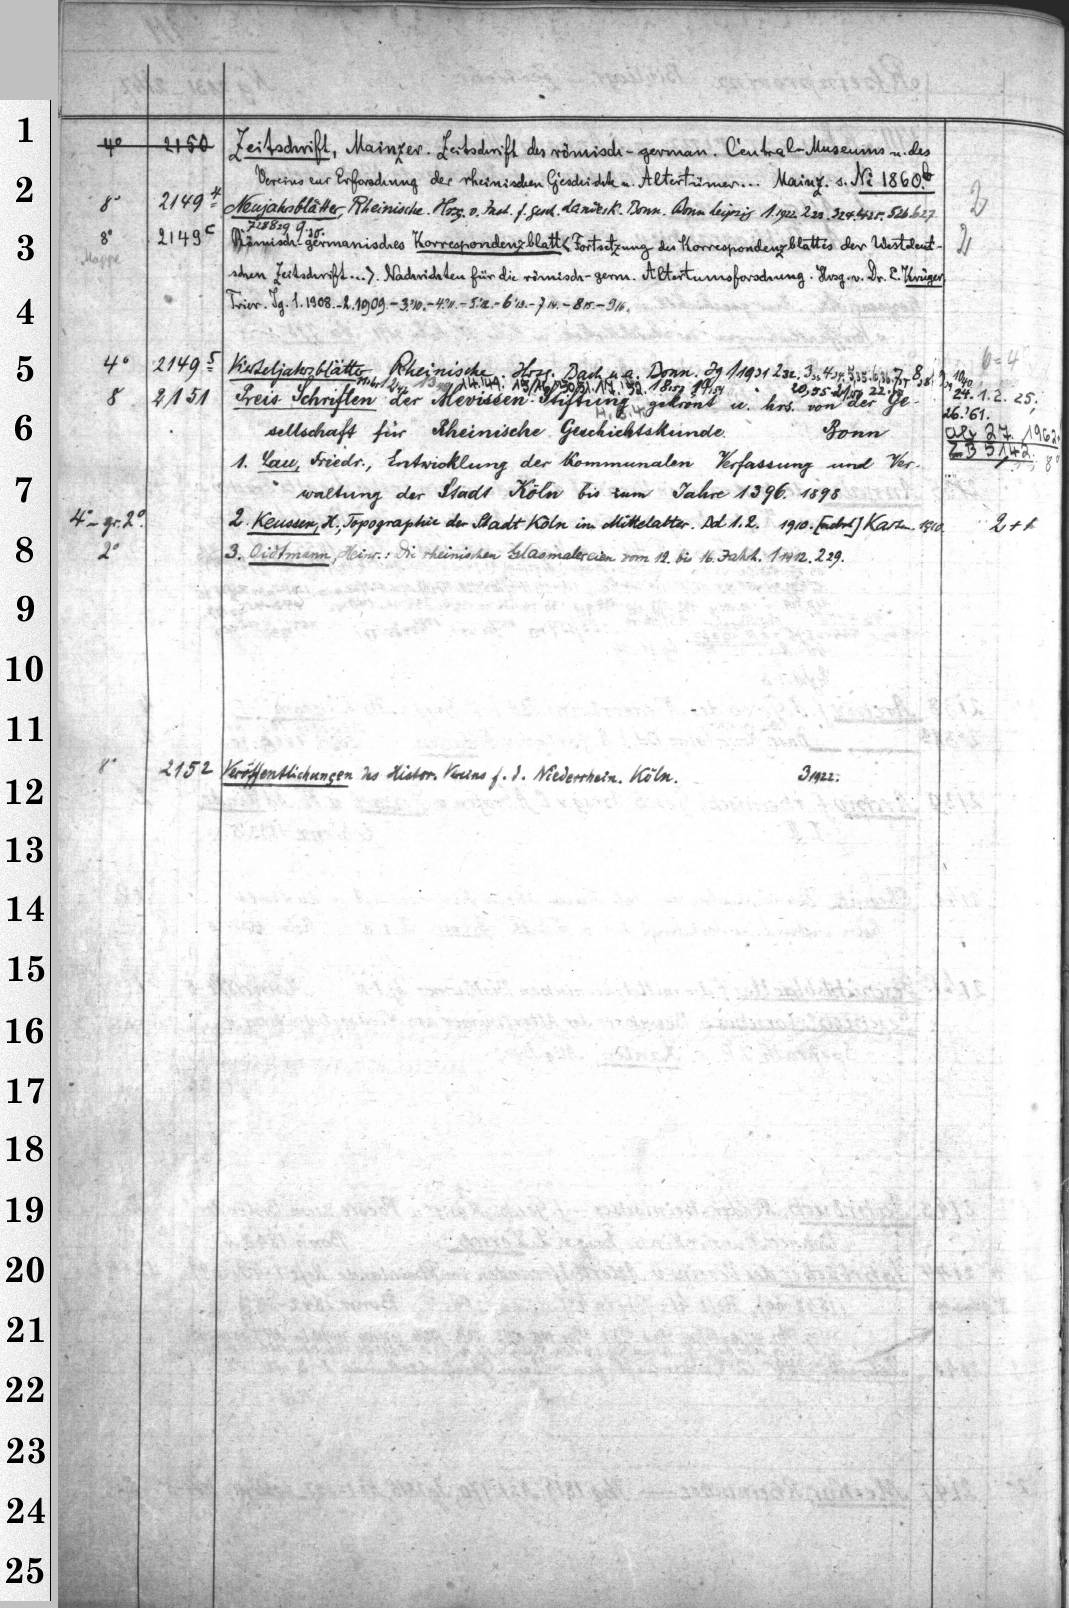 1
4° 2150 Zeitschrift, Mainzer. Zeitschrift des römisch-german. Central-Museums u. des
2
Vereins zur Erforschung der rheinischen Geschichte u. Altertümer... Mainz. s. Ni 1860.b
8° 2149 4 Neujahrsblätter, Rheinische. Hrsg. v. Inst. f. gesch. Landesk. Bonn. Bonn Leipzig 1.1922. 2 23. 3 24. 4 25. 5 26. 6 27. 2
7 28 8 29 9 30.
3
8° 2149 c Römisch-germanisches Korrespondenzblatt (Fortsetzung des Korrespondenzblattes der Westdeut- 2
Mappe
schen Zeitschrift...). Nachrichten für die römisch-germ. Altertumsforschung. Hrsg. v. Dr. E. Krüger,
4
Trier. Jg. 1. 1908.-2.1909.-3.'10.-4.'11.-5.'12.-6.'13.-7.'14.-8.'15.-9.'16.
5
4° 2149 5 Vierteljahrsblätter, Rheinische. Hrsg. Bach u. a. Bonn. Jg 1 1931 2 32. 3 33 4 34. 5 35. 6 36. 7 37 8 38. 9 39 10 40
8 2151 Preis Schriften der Mevissen-Stiftung gekrönt u. hrs. von der Ge- 24. 1. 2. 25.
26. '61.
6
sellschaft für Rheinische Geschichtskunde. Bonn
27. 1962.
ZB 5142.
1. Lau, Friedr., Entwicklung der kommunalen Verfassung und Ver-
8°
7
waltung der Stadt Köln bis zum Jahre 1396. 1898
4°-gr.2°. 2. Keussen, H., Topographie der Stadt Köln im Mittelalter. Bd 1. 2. 1910. [nebst] Karten. 1910. 2+1
8
2° 3. Oidtmann, Heinr.: Die rheinischen Glasmalereien vom 12. bis 16. Jahrh. 1 1912. 2 29.
9
10
11
8° 2152 Veröffentlichungen des Histor. Vereins f. d. Niederrhein. Köln. 3 1922.
12
13
14
15
16
17
18
19
20
21
22
23
24
25